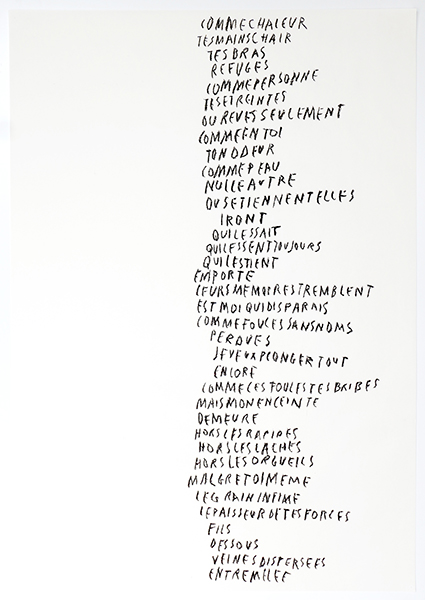 COMMECHALEUR
TESMAINSCHAIR
TESBRAS
REFUGES
COMMEPERSONNE
TESETREINTES
OUREVESSEULEMENT
COMMEENTOI
TONODEUR
COMMEPEAU
NULLEAUTRE
OUSETIENNENTELLES
IRONT
QUILESSAIT
QUILESSENTTOUJOURS
QUILESTIENT
EMPORTE
LEURSMEMOIRESTREMBLENT
ESTMOIQUIDISPARAIS
COMMEFOULESSANSNOMS
PERDUES
JEVEUXPLONGERTOUT
ENCORE
COMMECESFOULESTESBRIBES
MAISMONENCEINTE
DEMEURE
HORSLESRAPIDES
HORSLESLACHES
HORSLESORGUEILS
MALGRETOIMEME
LEGRAININFIME
LEPAISSEURDETESFORCES
FILS
DESSOUS
VEINESDISPERSEES
ENTREMELEE